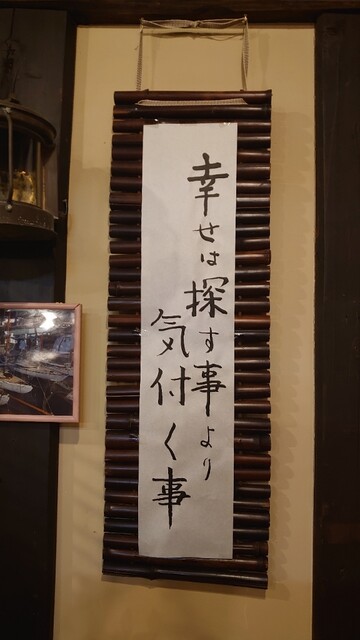 幸せは探す事より
気付く事